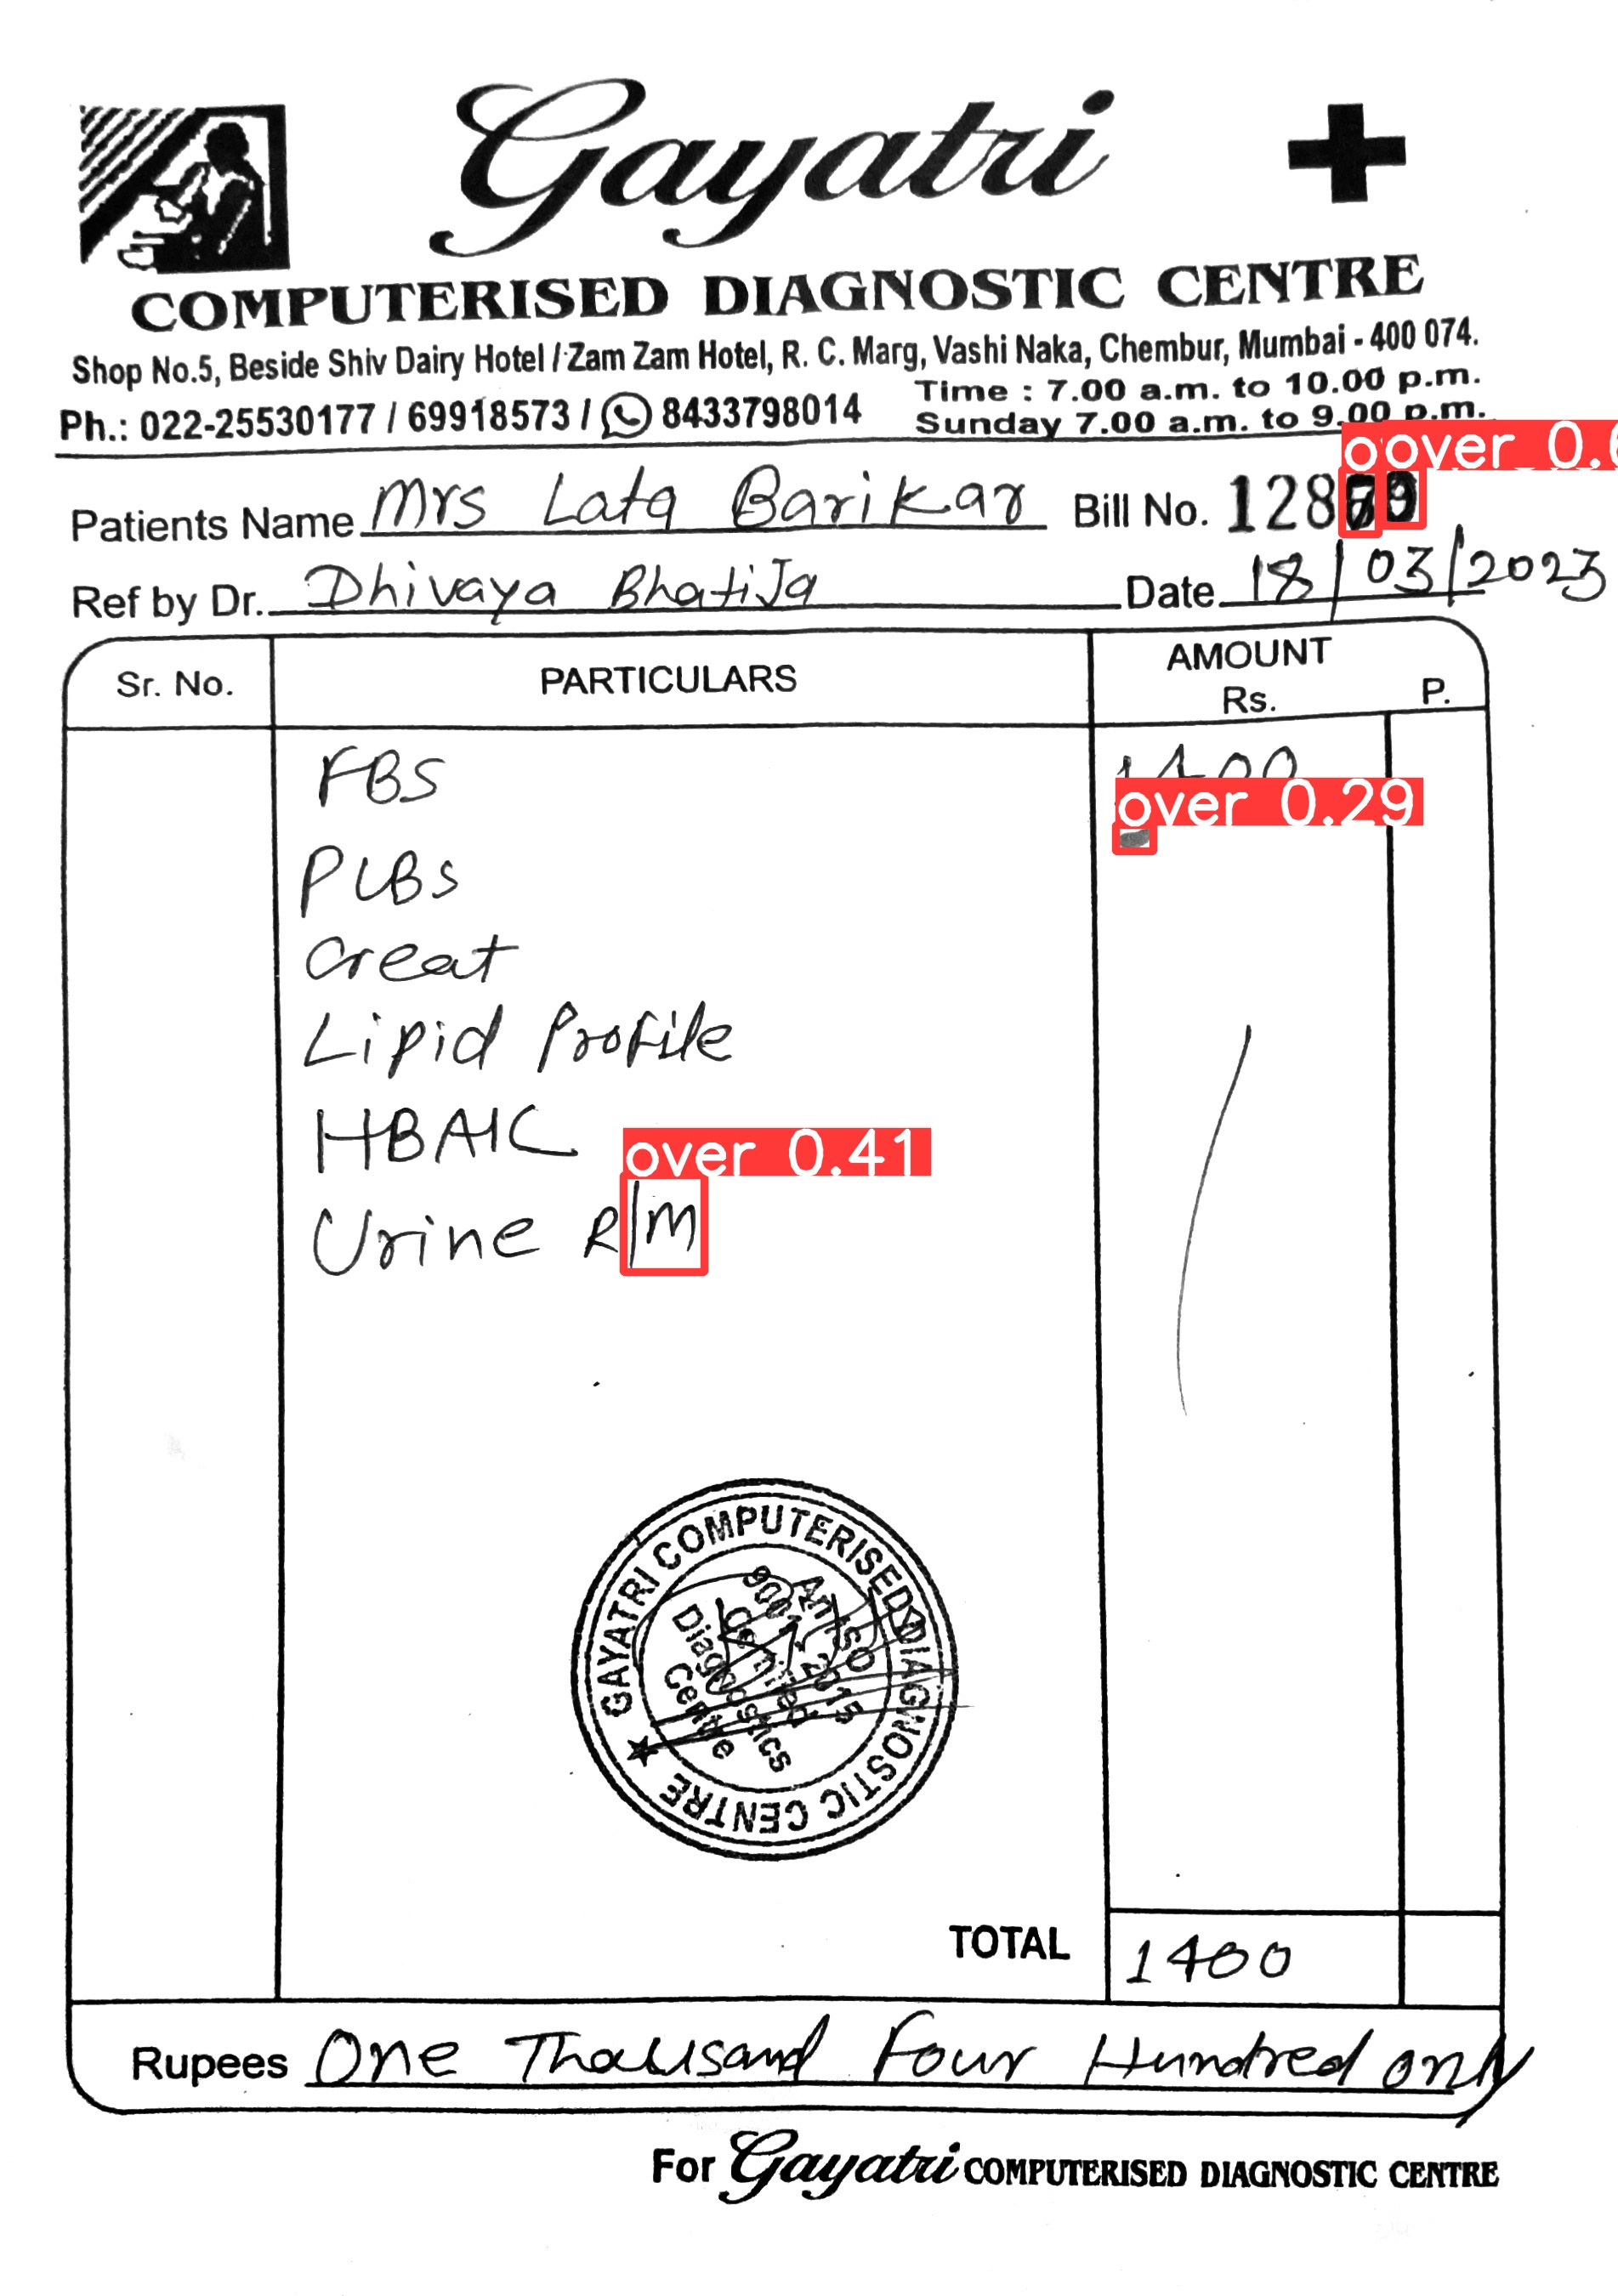 Gayatri
COMPUTERISED DIAGNOSTIC CENTRE
Shop No.5, Beside Shiv Dairy Hotel / Zam Zam Hotel, R. C. Marg, Vashi Naka, Chembur, Mumbai - 400 074.
Time : 7.00 a.m. to 10.00 p.m.
Ph.: 022-25530177 / 69918573 / 8433798014
Sunday 7.00 a.m. to 9.00 p.m.
over 0.6
Patients Name Mrs Lata Barikar Bill No.
Ref by Dr. Dhivaya Bhatija Date 18/03/2023
Sr. No. PARTICULARS AMOUNT Rs. P.
FBS 1400
over 0.29
PLBS
Creat
Lipid Profile
HBA1C
over 0.41
Urine R/M
GAYATRI COMPUTERISED DIAGNOSTIC CENTRE
An ISO
9001:2015
Certified
Diagnostics
Centre
TOTAL 1400
Rupees One Thousand Four Hundred only
For Gayatri COMPUTERISED DIAGNOSTIC CENTRE